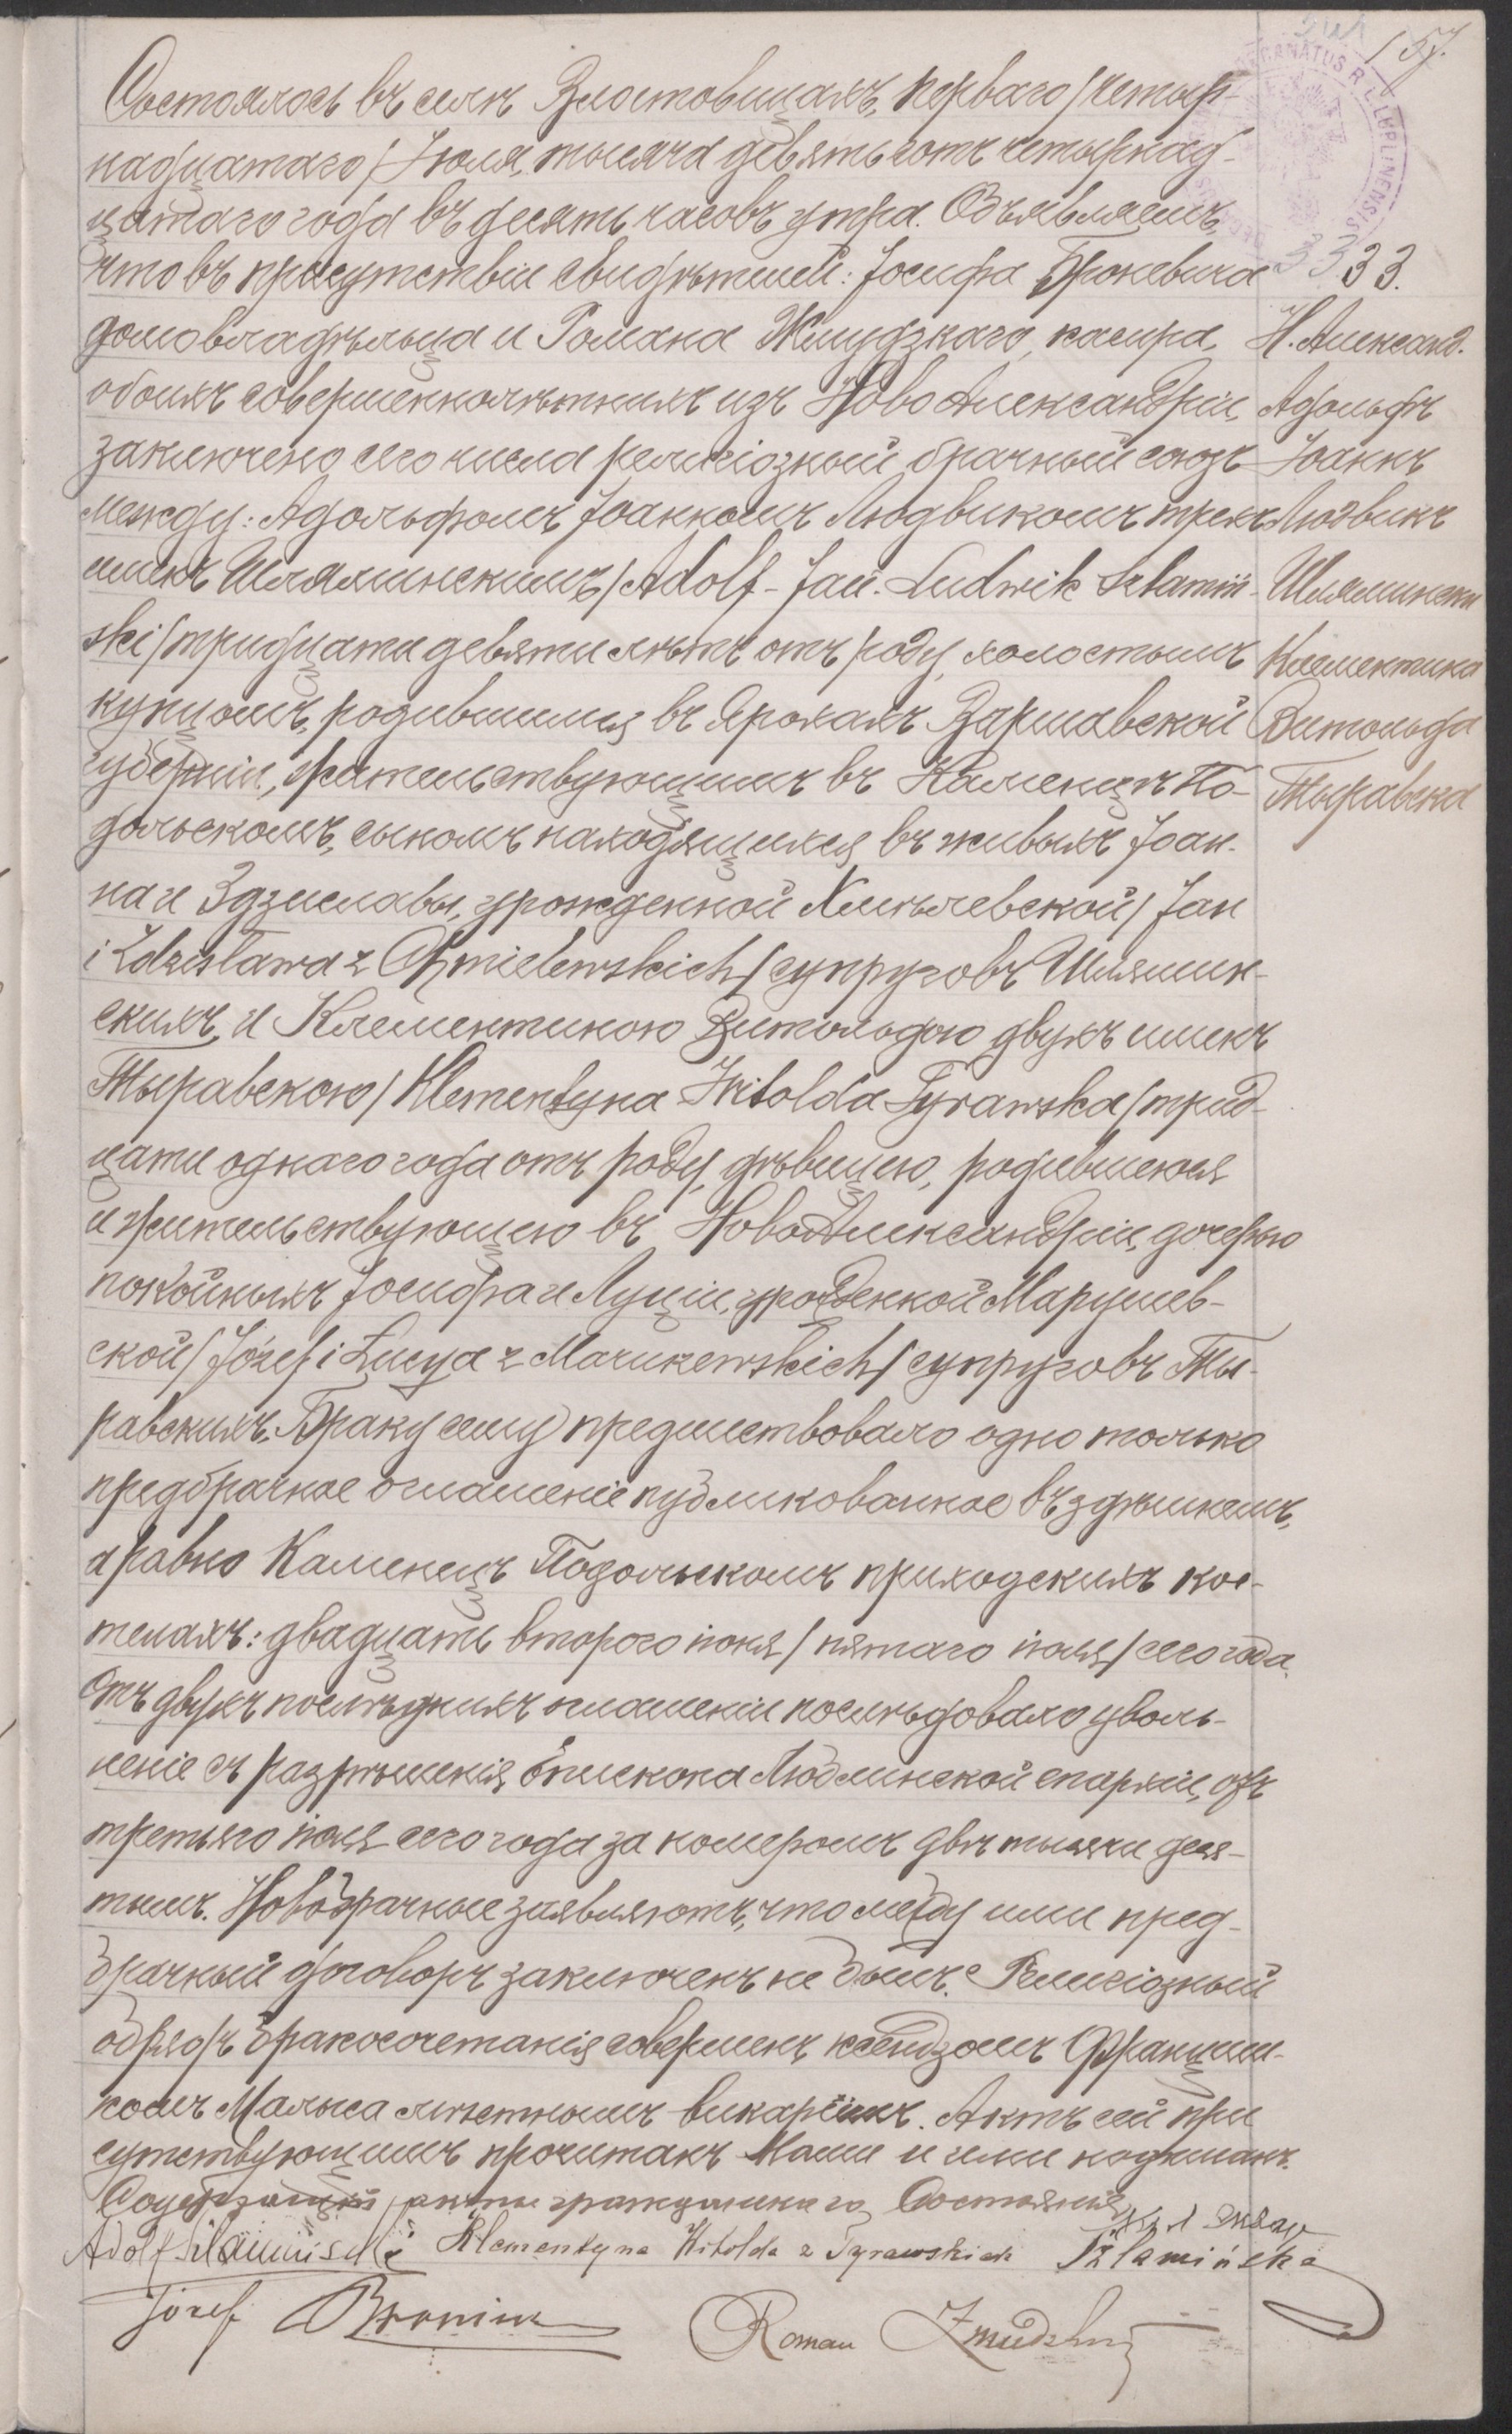 157.
Состоялось въ селѣ Влостовицахъ, перваго /четыр-
надцатаго/ Іюля, тысяча девятьсотъ четырнад-
цатаго года въ десять часовъ утра. Объявляемъ,
что въ присутствіи свидѣтелей: Іосифа Броневича
домовладѣльца и Романа Жмудзкаго, касира,
обоихъ совершеннолѣтнихъ изъ Ново Александріи,
заключено сего числа религіозный брачный союзъ
между: Адольфомъ Іоанномъ Людвикомъ трехъ
именъ Шляминскимъ /Adolf-Jan-Ludwik Szlamiń-
ski/ тридцати девяти лѣтъ отъ роду, холостымъ
купцомъ, родившимся въ Варшавской
губерніи, жительствующимъ въ Каменцѣ По-
дольскомъ, сыномъ находящихся въ живыхъ Іоан-
на и Здзиславы, урожденной Хмѣлевской /Jan
i Zdzisława z Chmielewskich/ супруговъ Шлямин-
скихъ, и Клементиною Витольдою двухъ именъ
Тыравскою /Klementyna Witolda Tyrawska/ трид-
цати однаго года отъ роду, дѣвицею, родившеюся
и жительствующею въ Ново Александріи, дочерью
покойныхъ Іосифа и Луціи, урожденной Марушев-
ской /Józef i Łucya z Maruszewskich/ супруговъ Ты-
равскихъ. Браку сему предшествовало одно только
предбрачное оглашеніе публикованное въ здѣшнемъ,
а равно Каменецъ Подольскомъ приходскихъ кос-
телахъ: двадцать второго іюня /пятаго іюля/ сего года.
Отъ двухъ послѣднихъ оглашеніи послѣдовало уволь-
неніе съ разрѣшенія Епископа Люблинской епархіи, отъ
третьяго іюля сего года за номеромъ двѣ тысячи деся-
тымъ. Новобрачные заявляютъ, что между ими пред-
брачный договоръ заключенъ не былъ. Религіозный
обрядъ бракосочетанія совершенъ ксендзомъ Францiш-
комъ Малыса мѣстнымъ викаріемъ. Актъ сей при
сутствующимъ прочитанъ Нами и ими подписанъ.
Содержащій акты гражданскаго состоянія
Adolf Szlamiński Klementyna Witolda z Tyrawskich Szlamińska
Józef Roman Żmudzki
33.
Н. Александ.
Адольфъ
Іоаннъ
Людвикъ
Шляминскій
Клементина
Витольда
Тыравска